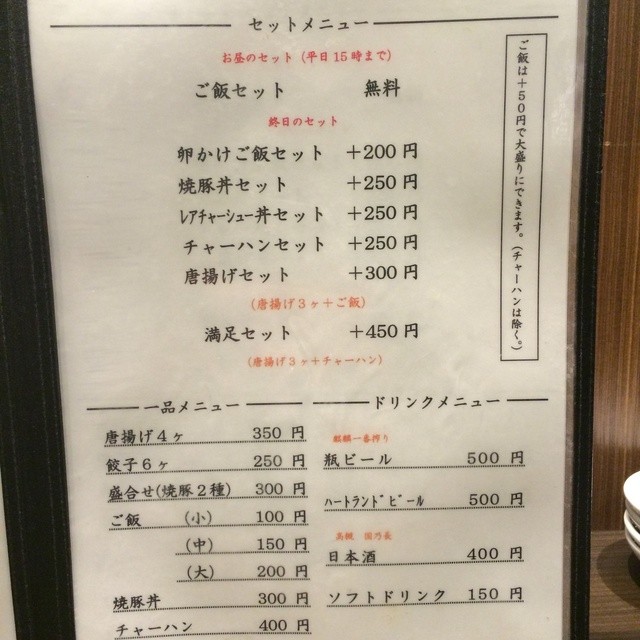 セットメニュー
お昼のセット (平日15時まで)
ご飯セット 無料
終日のセット
卵かけご飯セット +200 円
焼豚丼セット +250 円
ﾚｱﾁｬｰｼｭｰ丼セット +250 円
チャーハンセット +250 円
唐揚げセット +300 円
(唐揚げ3ヶ+ご飯)
満足セット +450 円
(唐揚げ3ヶ+チャーハン)
ご飯は+50円で大盛りにできます。(チャーハンは除く。)
一品メニュー
唐揚げ4ヶ 350 円
餃子6ヶ 250 円
盛合せ(焼豚2種) 300 円
ご飯 (小) 100 円
(中) 150 円
(大) 200 円
焼豚丼 300 円
チャーハン 400 円
ドリンクメニュー
麒麟一番搾り
瓶ビール 500 円
ﾊｰﾄﾗﾝﾄﾞﾋﾞｰﾙ 500 円
日本酒 400 円
ソフトドリンク 150 円